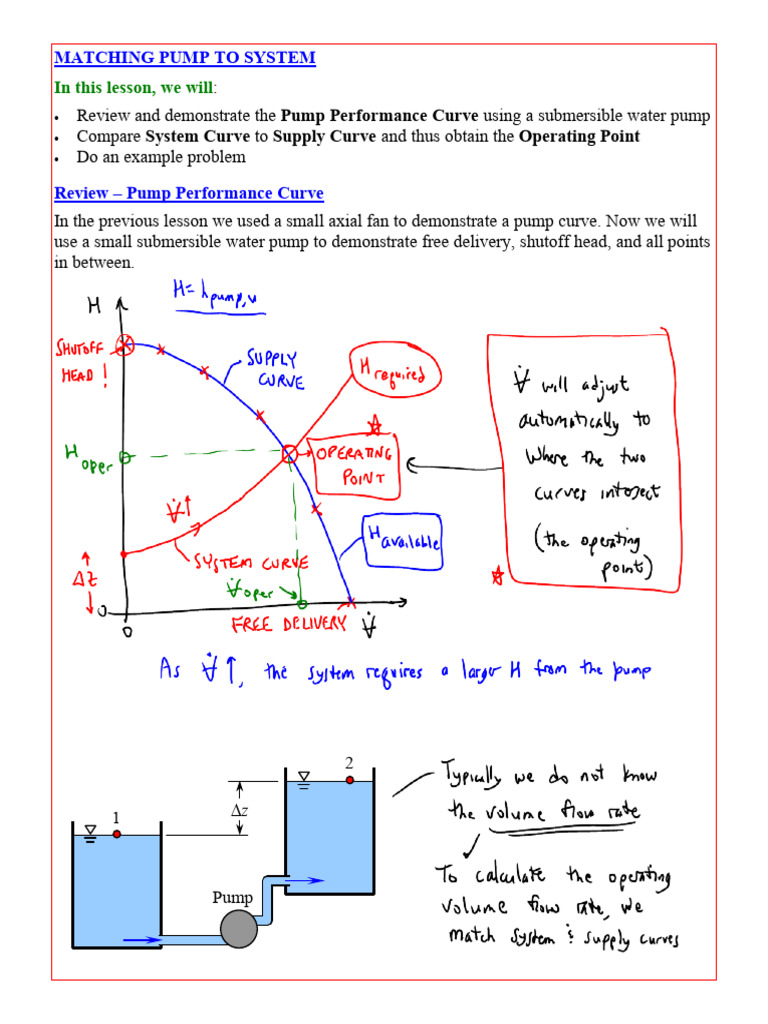 MATCHING PUMP TO SYSTEM
In this lesson, we will:
• Review and demonstrate the Pump Performance Curve using a submersible water pump
• Compare System Curve to Supply Curve and thus obtain the Operating Point
• Do an example problem
Review – Pump Performance Curve
In the previous lesson we used a small axial fan to demonstrate a pump curve. Now we will
use a small submersible water pump to demonstrate free delivery, shutoff head, and all points
in between.
H
H = hpump,u
SHUTOFF
HEAD!
SUPPLY
CURVE
Hrequired
Hoper
OPERATING
POINT
V̇↑
SYSTEM CURVE
Havailable
ΔZ
V̇oper
0
0
FREE DELIVERY
V̇
V̇ will adjust
automatically to
where the two
curves intersect
(the operating
point)
As V̇↑, the system requires a larger H from the pump
2
Δz
1
Pump
Typically we do not know
the volume flow rate
To calculate the operating
volume flow rate, we
match system & supply curves